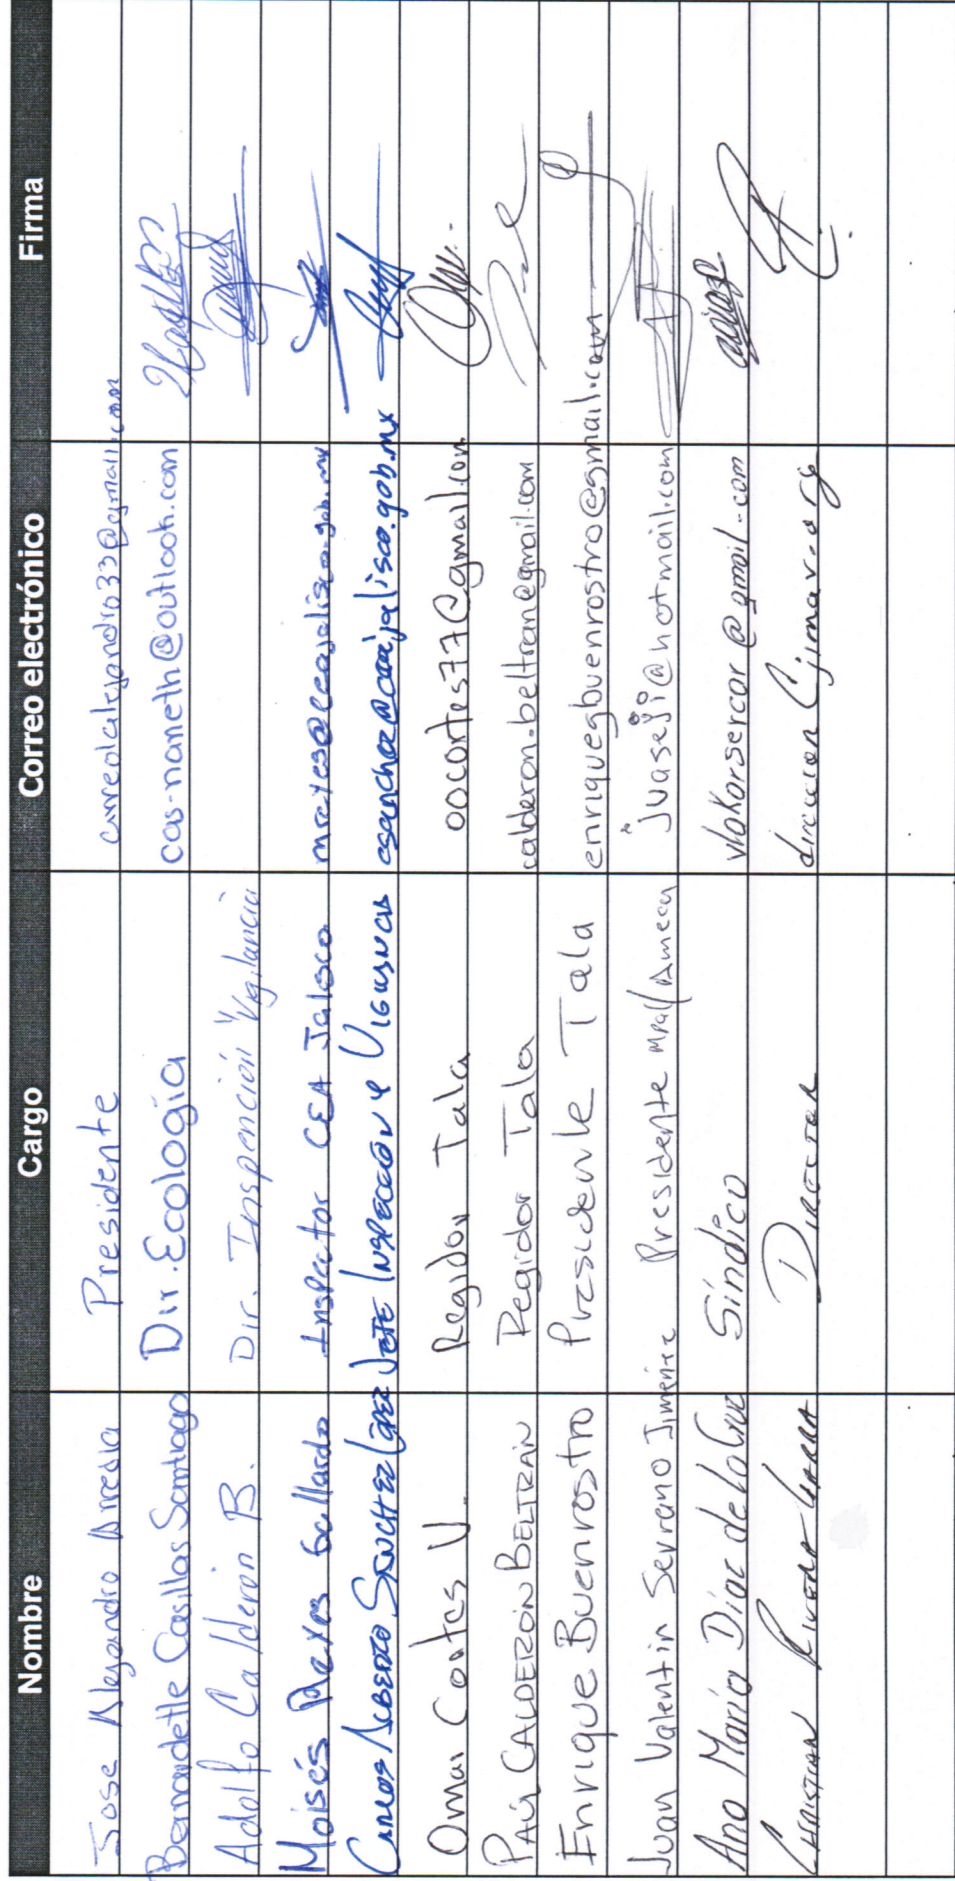 Nombre Cargo Correo electrónico Firma
Jose Alejandro Arreola Presidente arreolalejandro33@gmail.com
Bernardette Casillas Santiago Dir. Ecología cas-naneth@outlook.com
Adolfo Calderón B. Dir. Inspención y Vigilancia
Moisés Reyes Gallardo Inspector CEA Jalisco mreyes@ceajalisco.gob.mx
Carlos Alberto Sánchez López Jefe Inspección y Vigilancia csanchez@ceajalisco.gob.mx
Omar Cortes V. Regidor Tala oocortes77@gmail.com
Paúl Calderón Beltrán Regidor Tala calderon.beltran@gmail.com
Enrique Buenrostro Presidente Tala enriquegbuenrostro@gmail.com
Juan Valentin Serrano Jiménez Presidente Mpal/Ameca juaseji@hotmail.com
Ana María Díaz de la Cruz Síndico vlakorsercar@gmail.com
Christian Rivera Director direccion@jimav.org